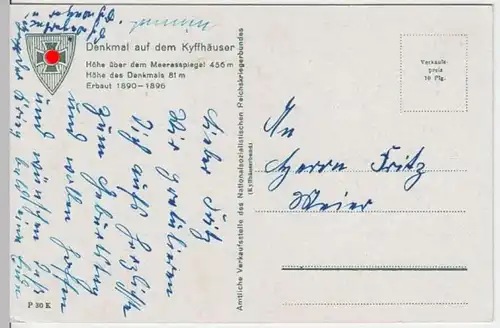 Denkmal auf dem Kyffhäuser
Höhe über dem Meeresspiegel 456 m
Höhe des Denkmals 81 m
Erbaut 1890–1896
Lieber Fritz
Wir gratulieren
Dir aufs herzlichste
zum Geburtstag
und wollen hoffen
und wünschen daß
P 30 K
Amtliche Verkaufsstelle des Nationalsozialistischen Reichskriegerbundes
(Kyffhäuserbund)
Verkaufs-
preis
10 Pfg.
An
Herrn Fritz
Meier